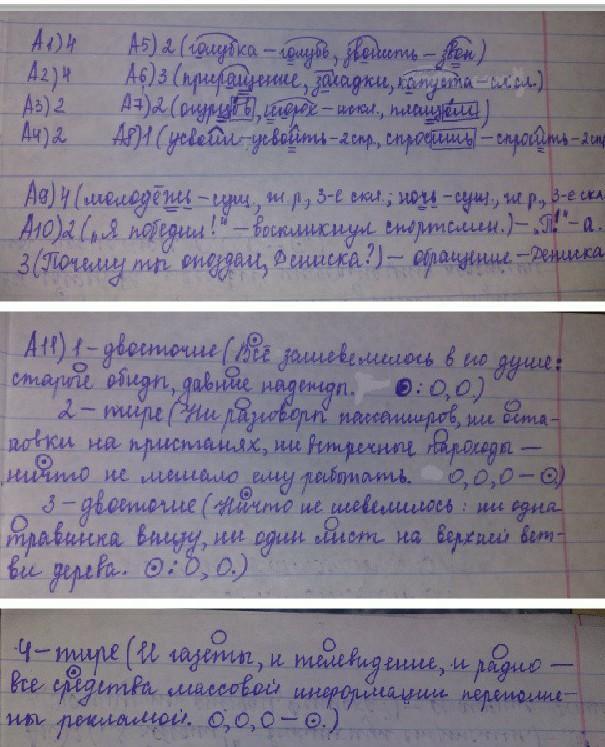 А1) 4 А5) 2 (голубка – голубь, звонить – звон)
А2) 4 А6) 3 (приращение, загадки, капуста – искл.)
А3) 2 А7) 2 (огурцы, – искл., плащом)
А4) 2 А8) 1 (усвоил – усвоить – 2 спр., спросишь – спросить – 2 спр
А9) 4 (молодёжь – сущ., ж.р., 3-е скл.; ночь – сущ., ж.р., 3-е скл
А10) 2 („Я победил!“ – воскликнул спортсмен.) – „П!“ – а.
3 (Почему ты опоздал, Дениска?) – обращение – Дениска
А11) 1 – двоеточие (Всё зашевелилось в его душе:
старые обиды, давние надежды. : О, О)
2 – тире (Ни разговоры пассажиров, ни оста-
новки на пристанях, ни встречные пароходы –
ничто не мешало ему работать. О, О, О – )
3 – двоеточие (Ничто не шевелилось: ни одна
травинка внизу, ни один лист на верхней вет-
ви дерева. ⊙: О, О.)
4 – тире (И газеты, и телевидение, и радио –
все средства массовой информации переполне-
ны рекламой. О, О, О – ⊙.)